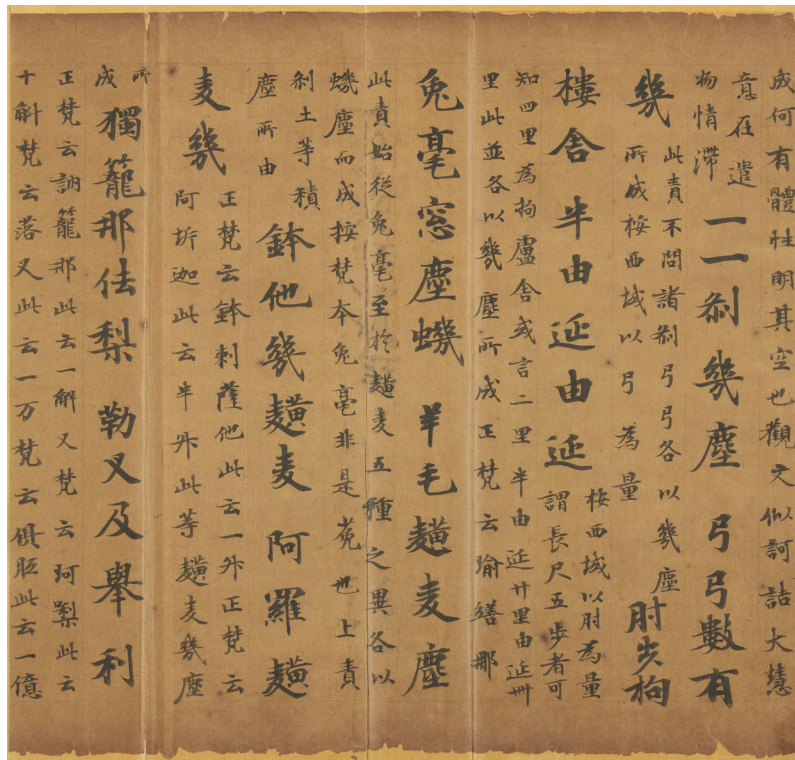 成何有體性明其空也觀文似訶詰大慧
意在遣
物情滯
一一刹幾塵 弓弓數有
幾
此責不問諸刹弓弓各以幾塵
所成桉西域以弓為量
肘步拘
樓舍半由延由延
桉西域以肘為量
謂長尺五步者可
知四里為拘盧舍或言二里半由延廾里由延卌
里此並各以幾塵所成正梵云瑜繕那
兔毫窓塵蟣 羊毛䵃麦塵
此責始從兔毫至於䵃麦五種之異各以
蟣塵而成桉梵本兔毫非是菟也上責
刹土等積
塵所由
鉢他幾䵃麦 阿羅䵃
麦幾
正梵云鉢刺薩他此云一升正梵云
阿㪿迦此云半升此等䵃麦幾塵
所
成
獨籠那佉梨 勒叉及舉利
正梵云訥籠那此云一斛又梵云珂梨此云
十斛梵云落叉此云一万梵云俱胝此云一億